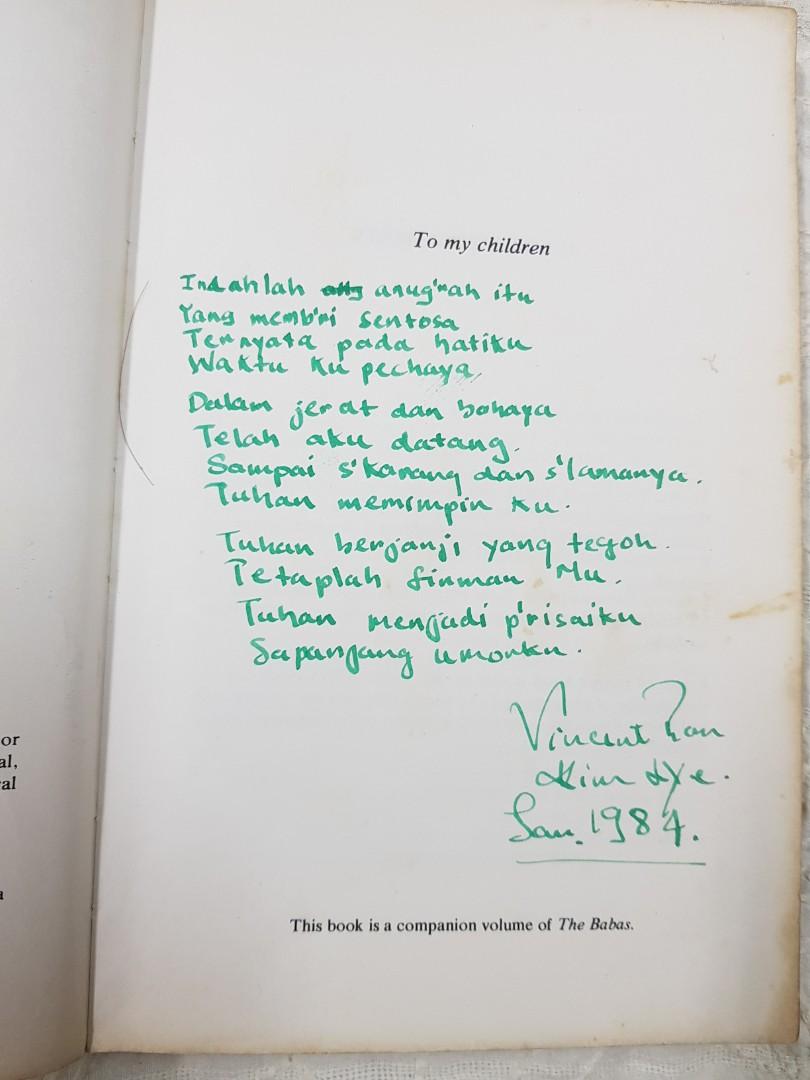 To my children
Indahlah anug'rah itu
Yang memb'ri sentosa
Ternyata pada hatiku
Waktu ku pechaya
Dalam jerat dan bahaya
Telah aku datang.
Sampai s'karang dan s'lamanya.
Tuhan memimpin ku.
Tuhan berjanji yang tegoh.
Tetaplah firman Mu.
Tuhan menjadi p'risaiku
Sapanjang umorku.
Vincent
Kim Lye.
Jan. 1984.
This book is a companion volume of The Babas.
or
al,
al
a